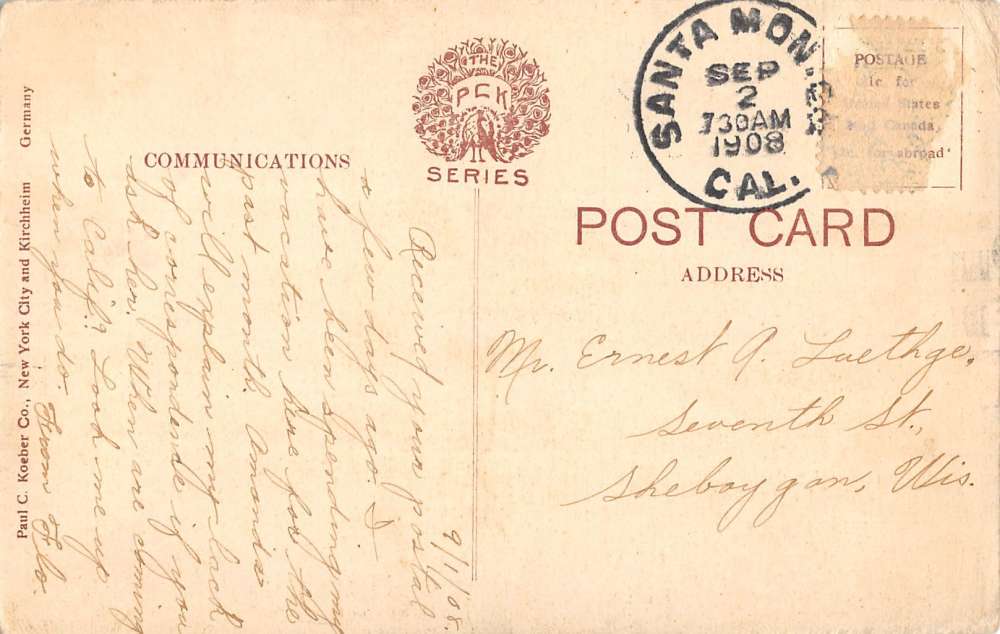 THE
PCK
SERIES
COMMUNICATIONS
SANTA MON
SEP
2
730AM
1908
CAL.
POSTAGE
1c for
States
Canada
for abroad
POST CARD
ADDRESS
Mr. Ernest A. Luethge,
Seventh St.,
Sheboygan, Wis.
9/1/08.
Received your postal
a few days ago. I
have been spending my
vacation here for the
past month. Amanda
will explain my lack
of correspondence if you
ask her. When are coming
to Calif? Look me up
when you do. From Flo.
Paul C. Koeber Co., New York City and Kirchheim Germany